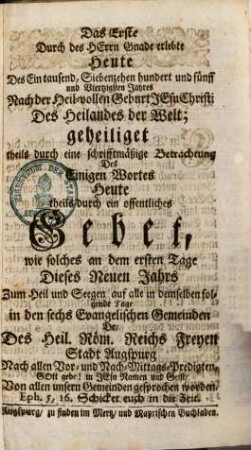 Das Erste
Durch des HErrn Gnade erlebte
Heute
Des Ein tausend, Siebenzehen hundert und fünff
und Viertzigsten Jahres
Nach der Heil-vollen Geburt JEsu Christi
Des Heilandes der Welt;
geheiliget
theils durch eine schrifftmäßige Betrachtung
Des
Einigen Wortes
Heute
theils durch ein offentliches
Gebet,
wie solches an dem ersten Tage
Dieses Neuen Jahrs
Zum Heil und Seegen auf alle in demselben fol-
gende Tage
in den sechs Evangelischen Gemeinden
Der
Des Heil. Röm. Reichs Freyen
Stadt Augspurg
Nach allen Vor- und Nach-Mittags-Predigten,
GOtt gebe! in JEsu Namen und Geist,
Von allen unsern Gemeinden gesprochen worden.
Eph. 5, 16. Schicket euch in die Zeit.
Augspurg, zu finden im Mertz- und Mayrischen Buchladen.